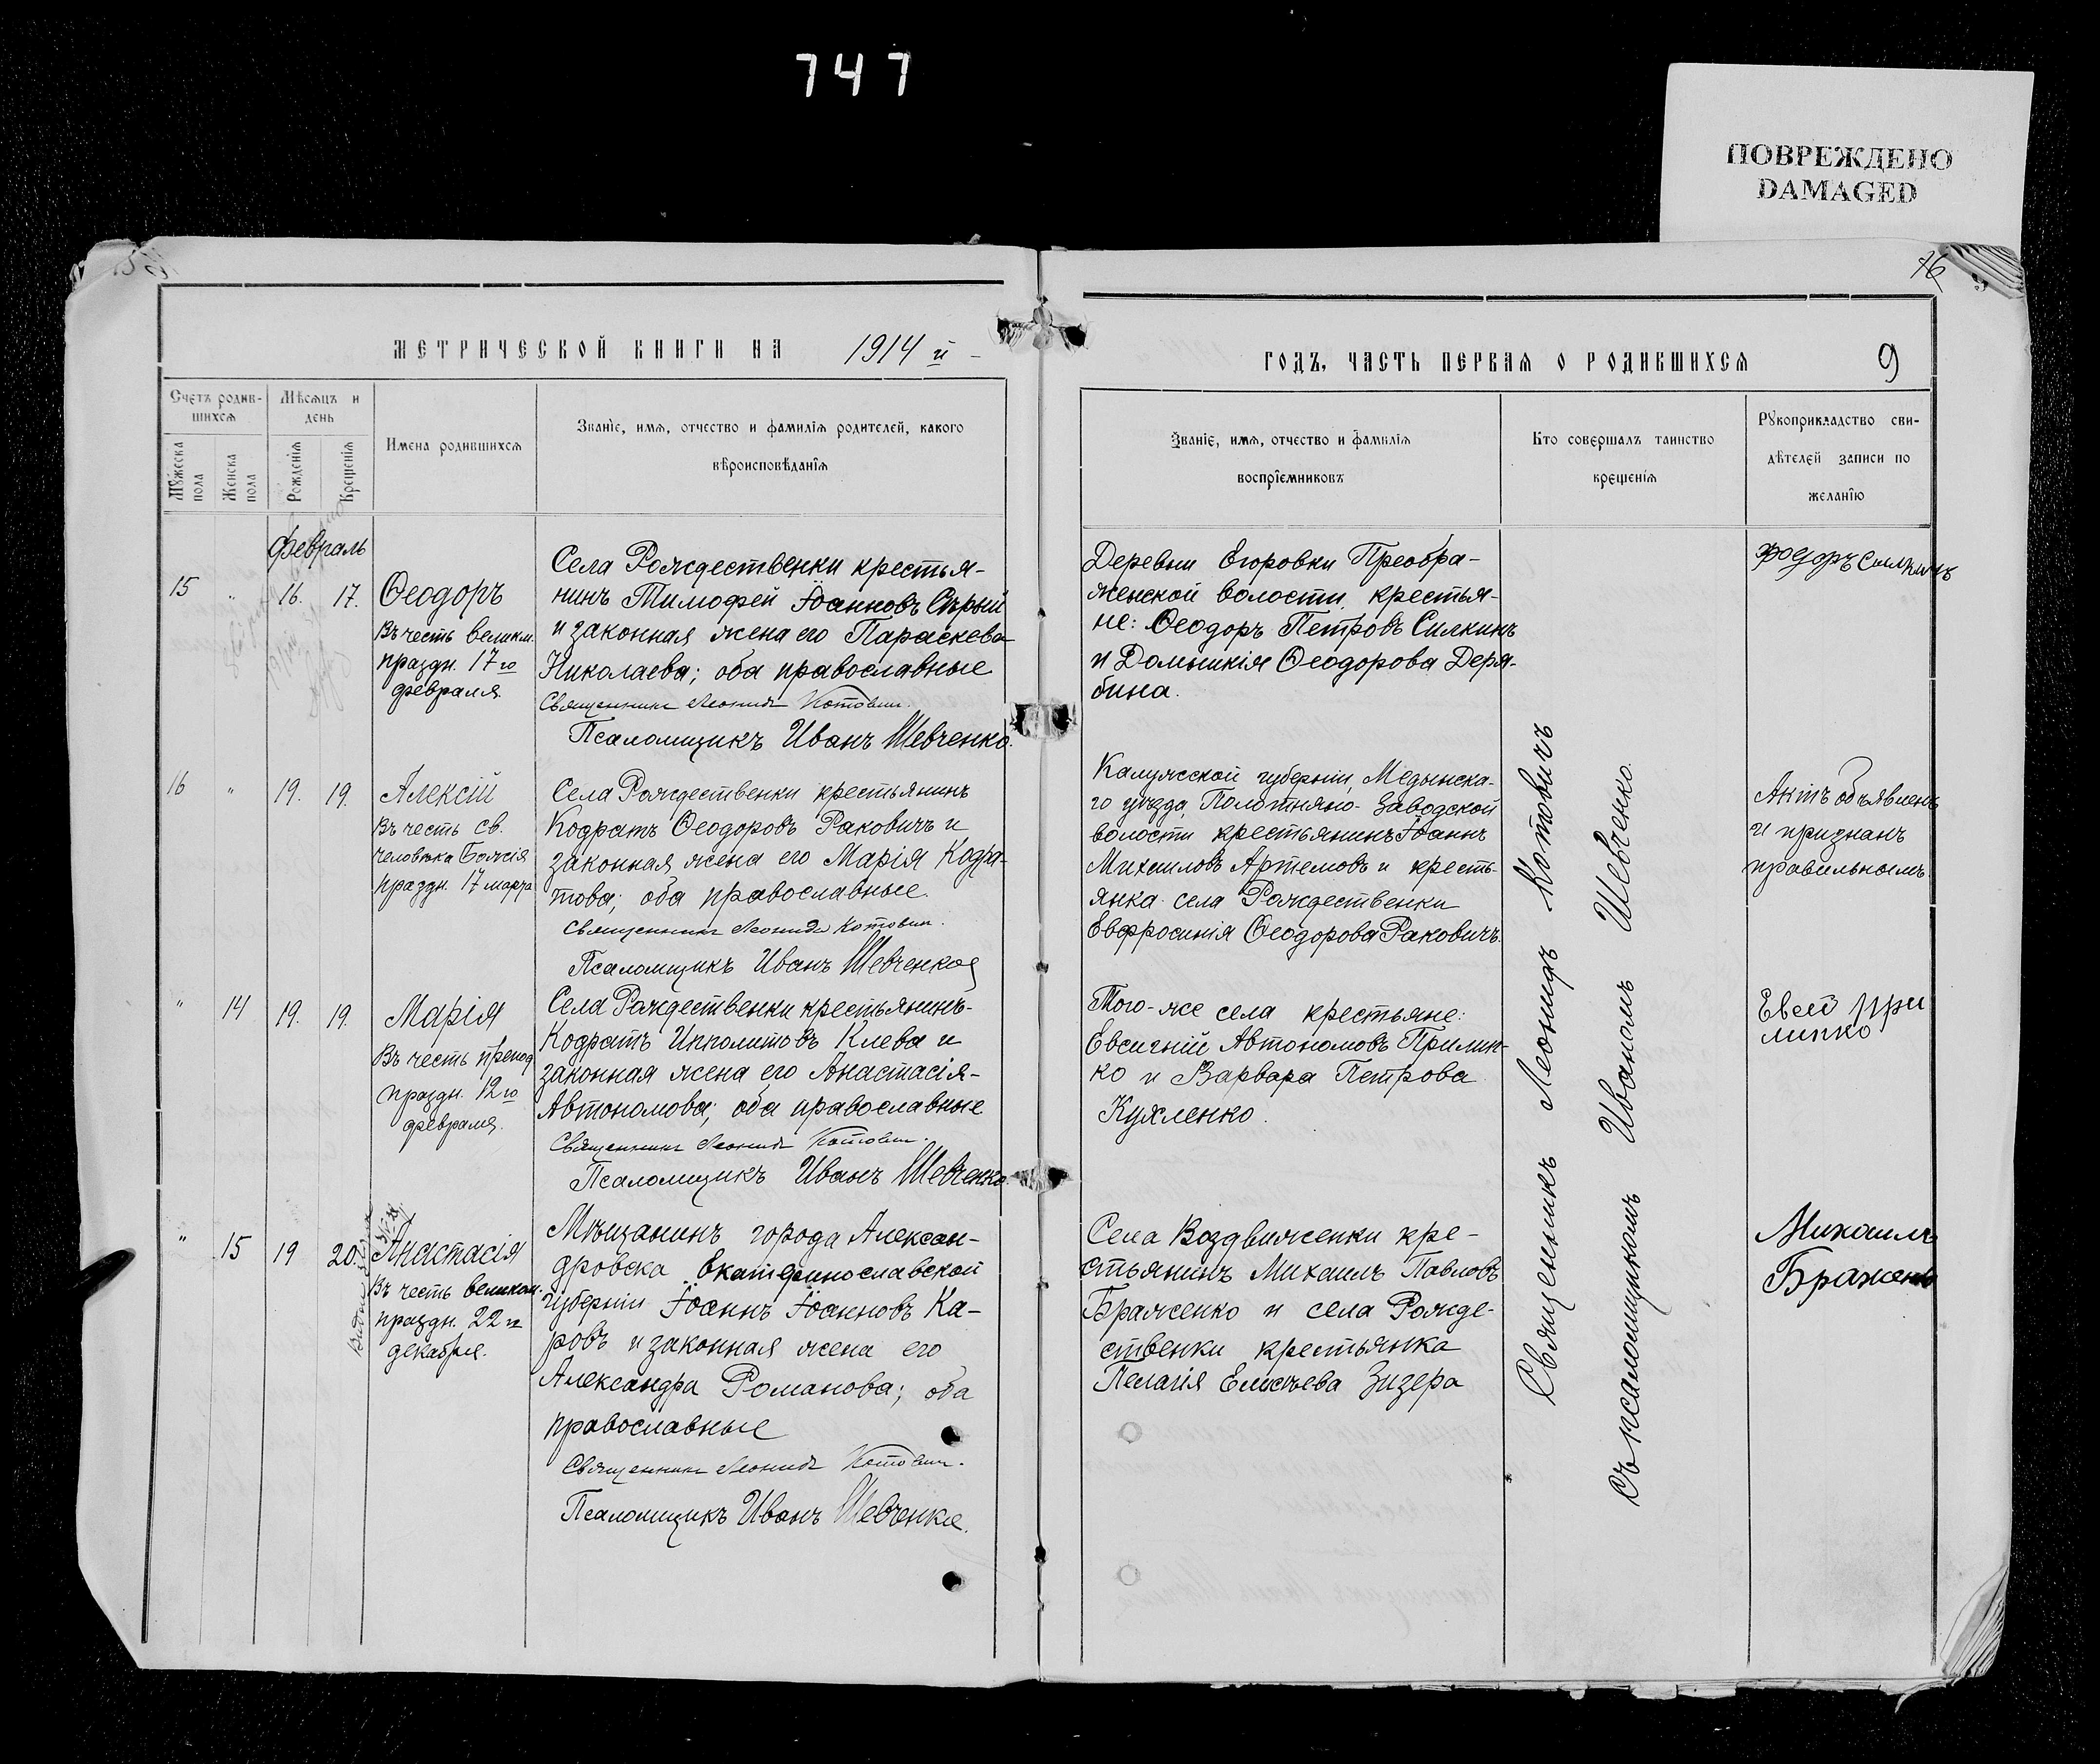 747
ПОВРЕЖДЕНО
DAMAGED
76
МЕТРИЧЕСКОЙ КНИГИ НА 1914 й
Счетъ родив-
шихся
Мѣсяцъ и
день
Мужеска
пола
Женска
пола
Рожденія
Крещенія
Имена родившихся
Званіе, имя, отчество и фамилія родителей, какого
вѣроисповѣданія
февраль
15 " 16. 17.
Ѳеодоръ
Въ честь великм.
праздн. 17го
февраля
Села Рождественки крестья-
нинъ Тимофей Іоанновъ Сѣрый
и законная жена его Параскева
Николаева; оба православные
Священникъ Леонидъ Котович.
Псаломщикъ Иванъ Шевченко.
16 " 19. 19.
Алексій
Въ честь св.
человѣка Божія
праздн. 17 марта
Села Рождественки крестьянинъ
Кодратъ Ѳеодоровъ Раковичъ и
законная жена его Марія Кодра-
това; оба православные
Священникъ Леонидъ Котович.
Псаломщикъ Иванъ Шевченко
" 14 19. 19.
Марія
Въ честь препод
праздн. 12го
февраля.
Села Рождественки крестьянинъ-
Кодратъ Ипполитовъ Клева и
законная жена его Анастасія-
Автономова; оба православные
Священникъ Леонидъ Котович.
Псаломщикъ Иванъ Шевченко.
" 15 19 20.
Анастасія
Въ честь великом.
праздн. 22го
декабря.
Мѣщанинъ города Алексан-
дровска Екатеринославской
губерніи Іоаннъ Іоанновъ Ка-
ровъ и законная жена его
Александра Романова; оба
православные
Священникъ Леонидъ Котович.
Псаломщикъ Иванъ Шевченко.
ГОДЪ, ЧАСТЬ ПЕРВАЯ О РОДИВШИХСЯ 9
Званіе, имя, отчество и фамилія
воспріемниковъ
Кто совершалъ таинство
крещенія
Рукоприкладство сви-
дѣтелей записи по
желанію
Деревни Егоровки Преобра-
женской волости крестья-
не: Ѳеодоръ Петровъ Силкинъ
и Домникія Ѳеодорова Деря-
бина.
Федоръ Силкинъ
Калужской губерніи, Медынска-
го уѣзда, Полотняно-Заводской
волости крестьянинъ Іоаннъ
Михаиловъ Артемовъ и кресть-
янка села Рождественки
Евфросинія Ѳеодорова Раковичъ.
Актъ объявленъ
и признанъ
правильнымъ.
Того-же села крестьяне:
Евсигній Автономовъ Прилип-
ко и Варвара Петрова
Кухленко.
Евсей При
липко
Села Воздвиженки кре-
стьянинъ Михаилъ Павловъ
Браженко и села Рожде-
ственки крестьянка
Пелагія Елисѣева Зизера
Михаилъ
Бражен
Священникъ Леонидъ Котовичъ
съ псаломщикомъ Иваномъ Шевченко.